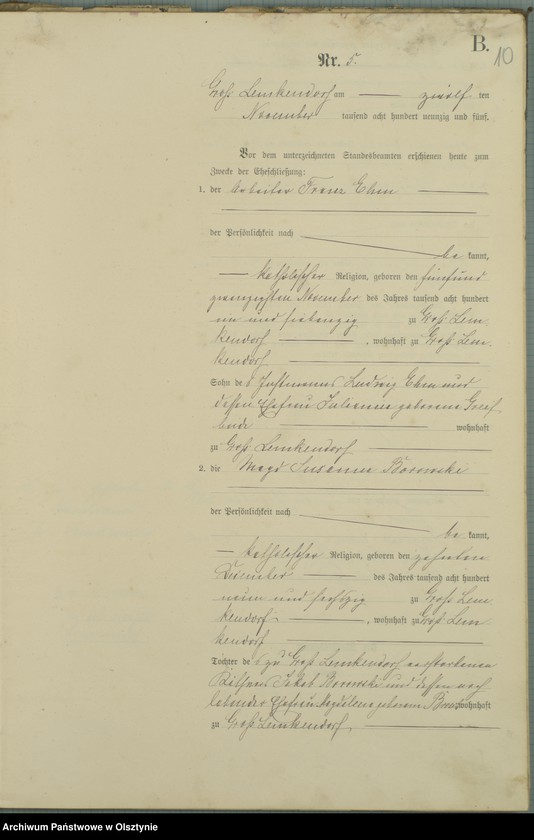 B.
10
Nr. 5.
Groß Lemkendorf am — zwölf ten
November tausend acht hundert neunzig und fünf.
Vor dem unterzeichneten Standesbeamten erschienen heute zum
Zwecke der Eheschließung:
1. der Arbeiter Franz Ehm
der Persönlichkeit nach
be kannt,
— katholischer Religion, geboren den fünfund
zwanzigsten November des Jahres tausend acht hundert
ein und siebenzig zu Groß Lem
kendorf —, wohnhaft zu Groß Lem
kendorf
Sohn des Ludwig Ehm und
dessen Ehefrau Julianna geborene
wohnhaft
zu Groß Lemkendorf
2. die Magd Susanna Borowski
der Persönlichkeit nach
be kannt,
— katholischer Religion, geboren den zehnten
Dezember — des Jahres tausend acht hundert
neun und sechszig zu Groß Lem
kendorf —, wohnhaft zu Groß Lem
kendorf
Tochter des zu Groß Lemkendorf verstorbenen
Jakob Borowski und dessen noch
lebender Ehefrau Magdalena geborene wohnhaft
zu Groß Lemkendorf,
Archiwum Państwowe w Olsztynie